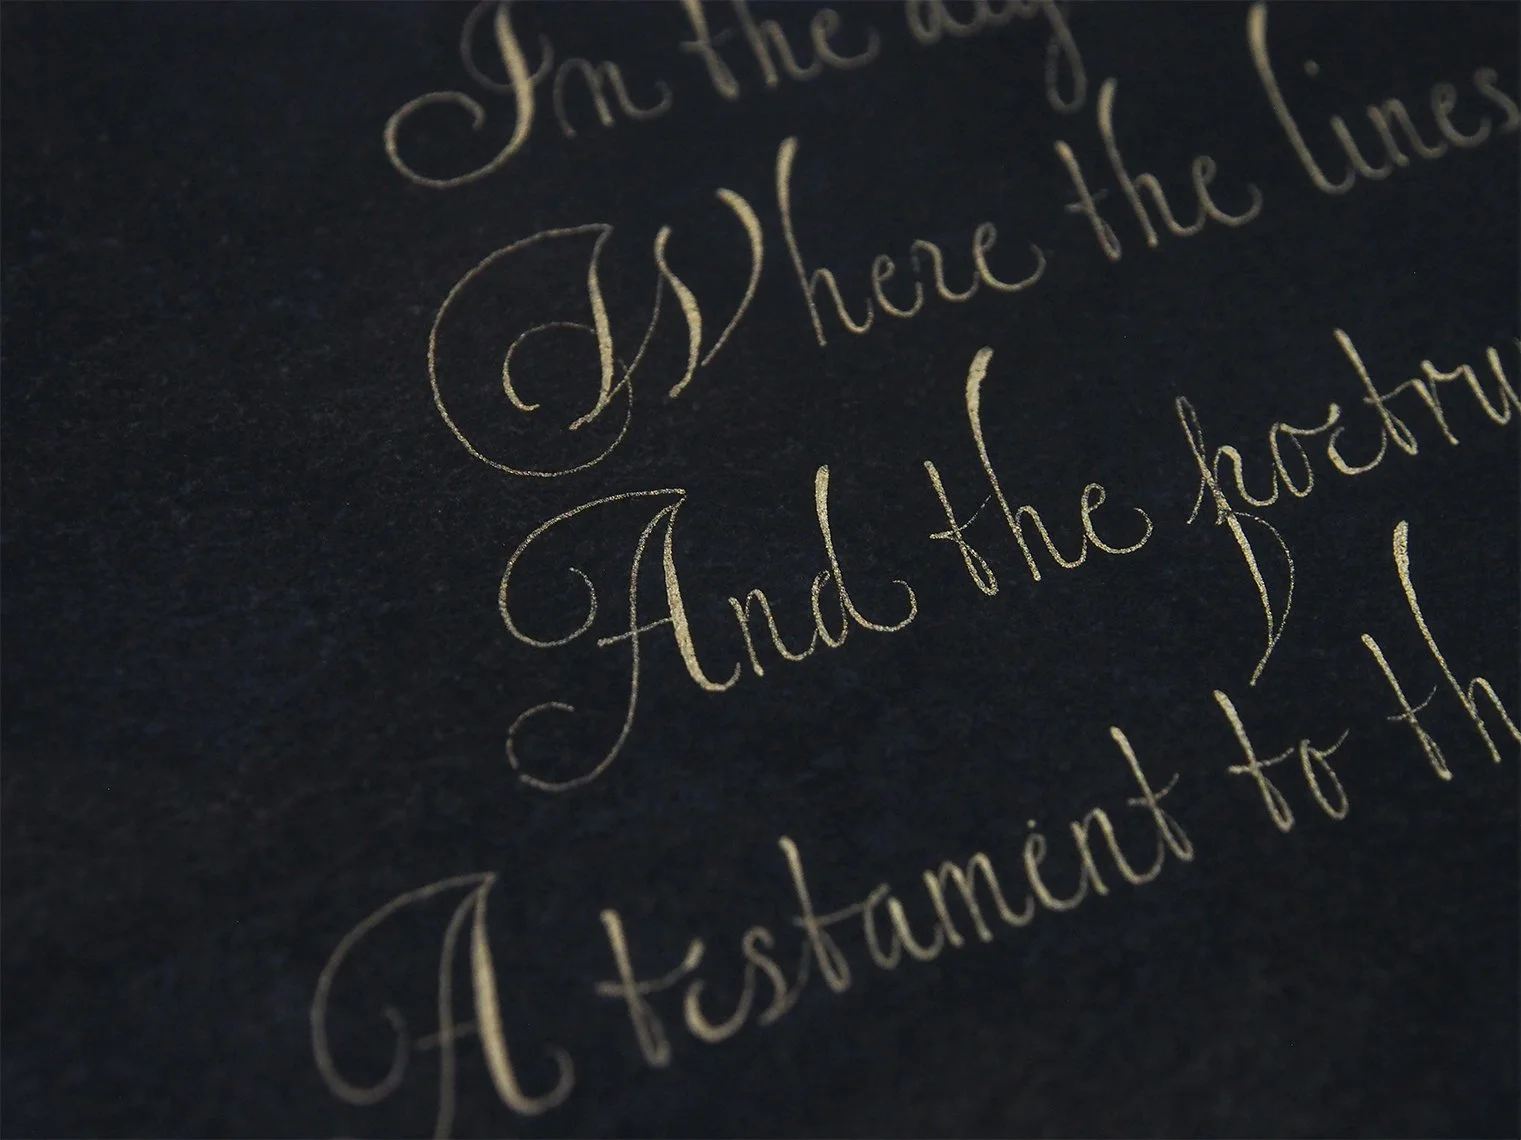 In the
Where the lines
And the poetry
A testament to th